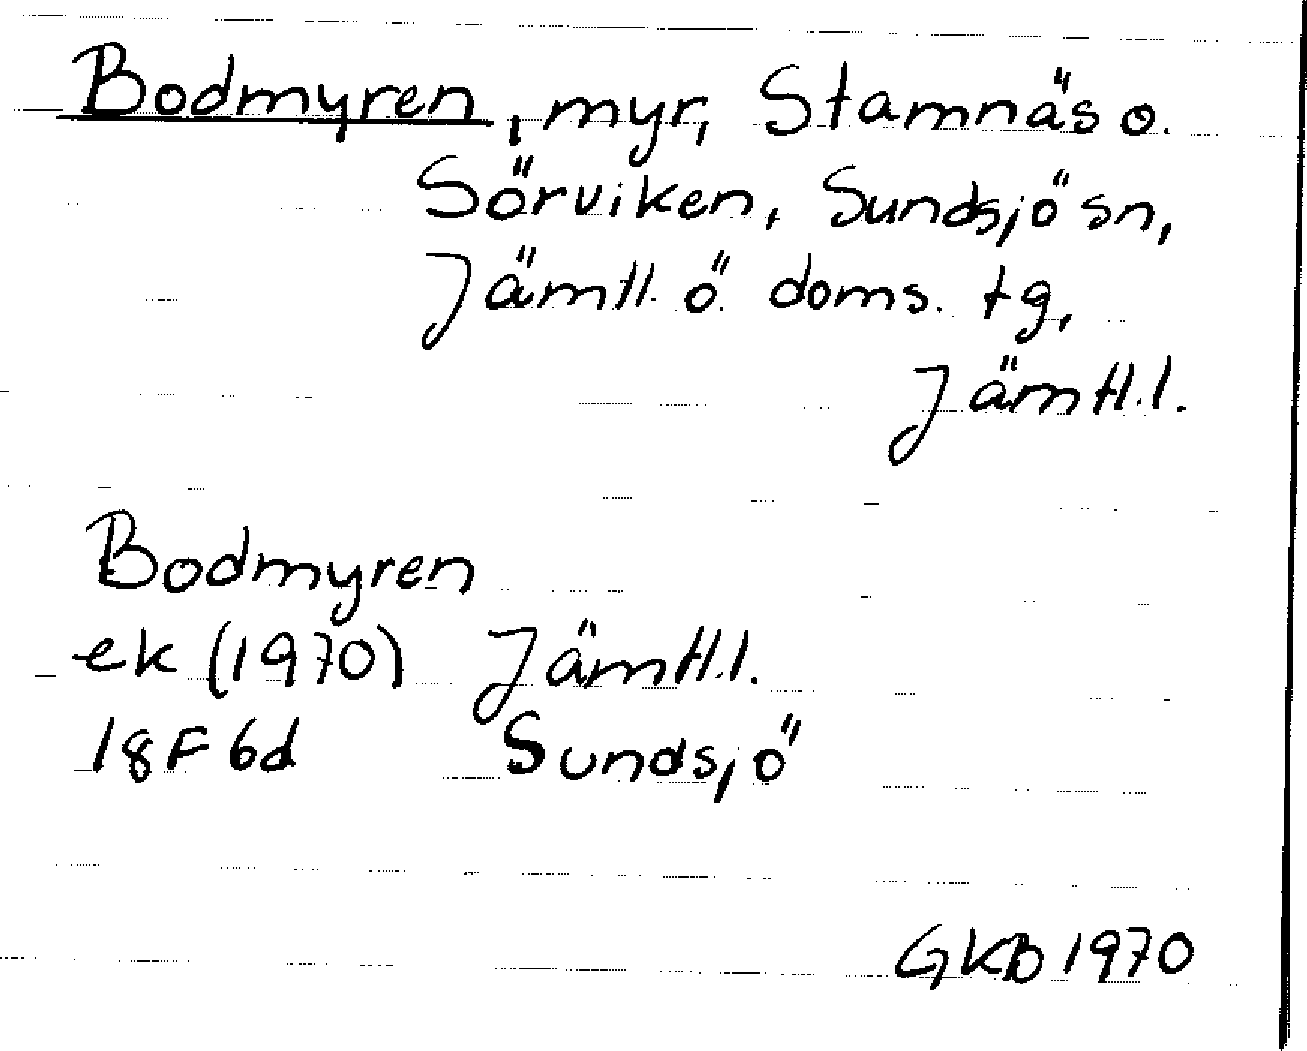 Bodmyren, myr, Stamnäs o.
Sörviken, Sundsjö sn,
Jämtl. ö. doms. tg,
Jämtl. l.
Bodmyren
ek (1970) Jämtl. l.
18F 6d Sundsjö
GKB 1970